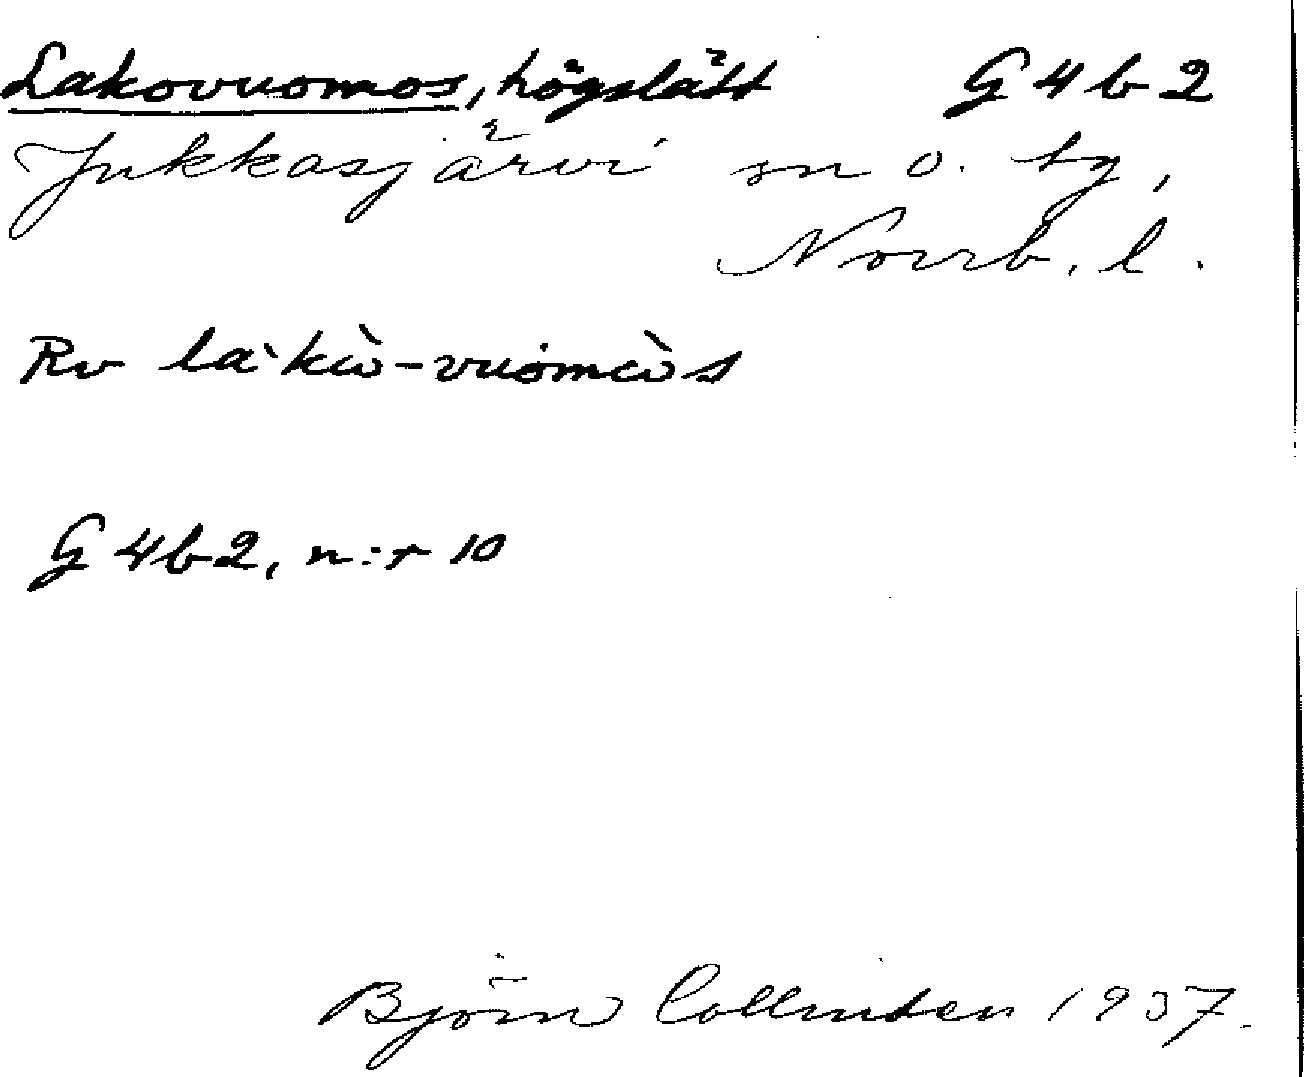 Lakovuomos, högslätt G4b2
Jukkasjärvi sn o. tg,
Norrb. l.
Rv
G4b2, n:r 10
Björn Collinder 1937.